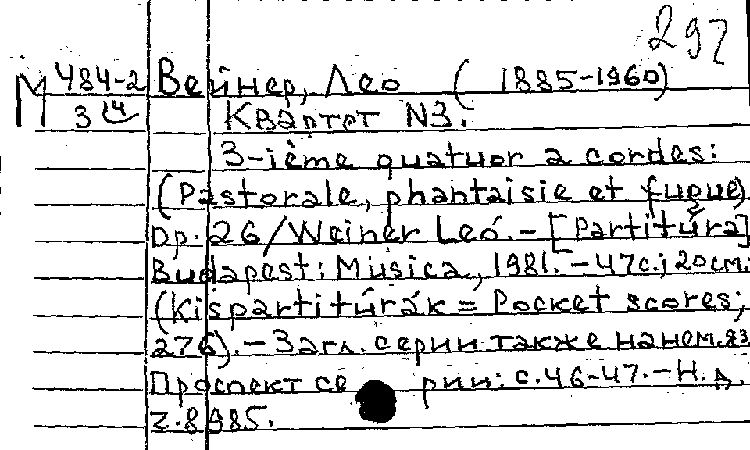 297
М 484-2 Вейнер, Лео (1885-1960)
3 Квартет N3.
3-ième quatuor a cordes:
(Pastorale, phantaisie et fugue)
Op. 26/Weiner Leó. - [Partitúra]
Budapest: Musica, 1981. - 47с.; 20см.
(Kispartitúrák = Pocket scores;
276). - Загл. серии также на нем. яз
Проспект серии: с. 46-47. - Н. д.
Z. 8985.